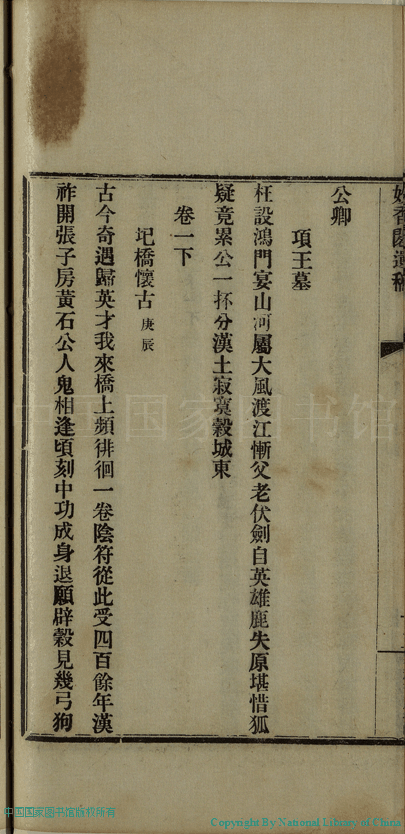 公卿
項王墓
枉設鴻門宴山河屬大風渡江慚父老伏劍自英雄鹿失原堪惜狐
疑竟累公一杯分漢土寂寞穀城東
卷一下
圯橋懷古 庚辰
古今奇遇歸英才我來橋上頻徘徊一卷陰符從此受四百餘年漢
祚開張子房黃石公人鬼相逢頃刻中功成身退願辟穀見幾弓狗
中国国家图书馆
中国国家图书馆版权所有
Copyright By National Library of China